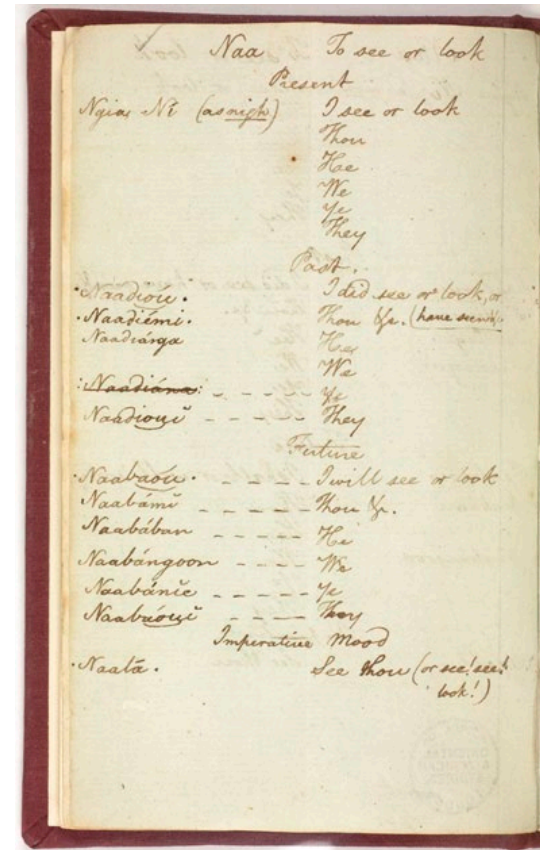 Naa To see or look
Present
Ngia, Ni (as nigh) I see or look
Thou
He
We
Ye
They
Past.
Naadiou. I did see or look, or
Naadiémi. Thou &c. (have seen &c.
Naadiánga He
We
Naadiána: - - - - - Ye
Naadiouĭ - - - - - They
Future
Naabaou. - - - - I will see or look
Naabámĭ - - - - - Thou &c.
Naabában - - - - - He
Naabángoon - - - - We
Naabánĭe - - - - - Ye
Naabáouĭ - - - - They
Imperative Mood
Naatá. See thou (or see! see!
look!)